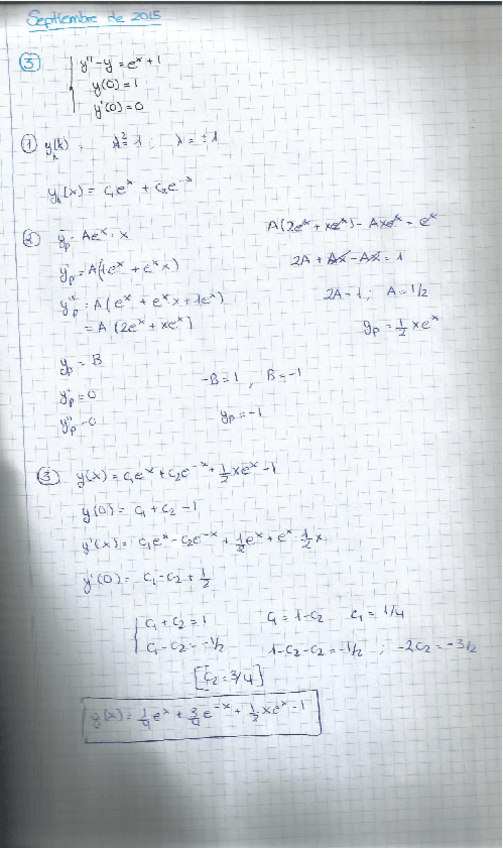 Septiembre de 2015
③ y'' - y = e^x + 1
y(0) = 1
y'(0) = 0
① λ² = 1 ; λ = ±1
y_h(x) = c₁e^x + c₂e^-x
② y_p = Ae^x · x
y'_p = A(1e^x + e^x x)
y''_p = A(e^x + e^x x + 1e^x)
= A(2e^x + xe^x)
A(2e^x + xe^x) - Axe^x = e^x
2A + Ax - Ax = 1
2A = 1 ; A = 1/2
y_p = 1/2 xe^x
y_p = B
y'_p = 0
y''_p = 0
-B = 1 , B = -1
y_p = -1
③ y(x) = c₁e^x + c₂e^-x + 1/2 xe^x - 1
y(0) = c₁ + c₂ - 1
y'(x) = c₁e^x - c₂e^-x + 1/2 e^x + e^x · 1/2 x
y'(0) = c₁ - c₂ + 1/2
c₁ + c₂ = 1 c₁ = 1 - c₂ c₁ = 1/4
c₁ - c₂ = -1/2 1 - c₂ - c₂ = -1/2 ; -2c₂ = -3/2
[c₂ = 3/4]
y(x) = 1/4 e^x + 3/4 e^-x + 1/2 xe^x - 1